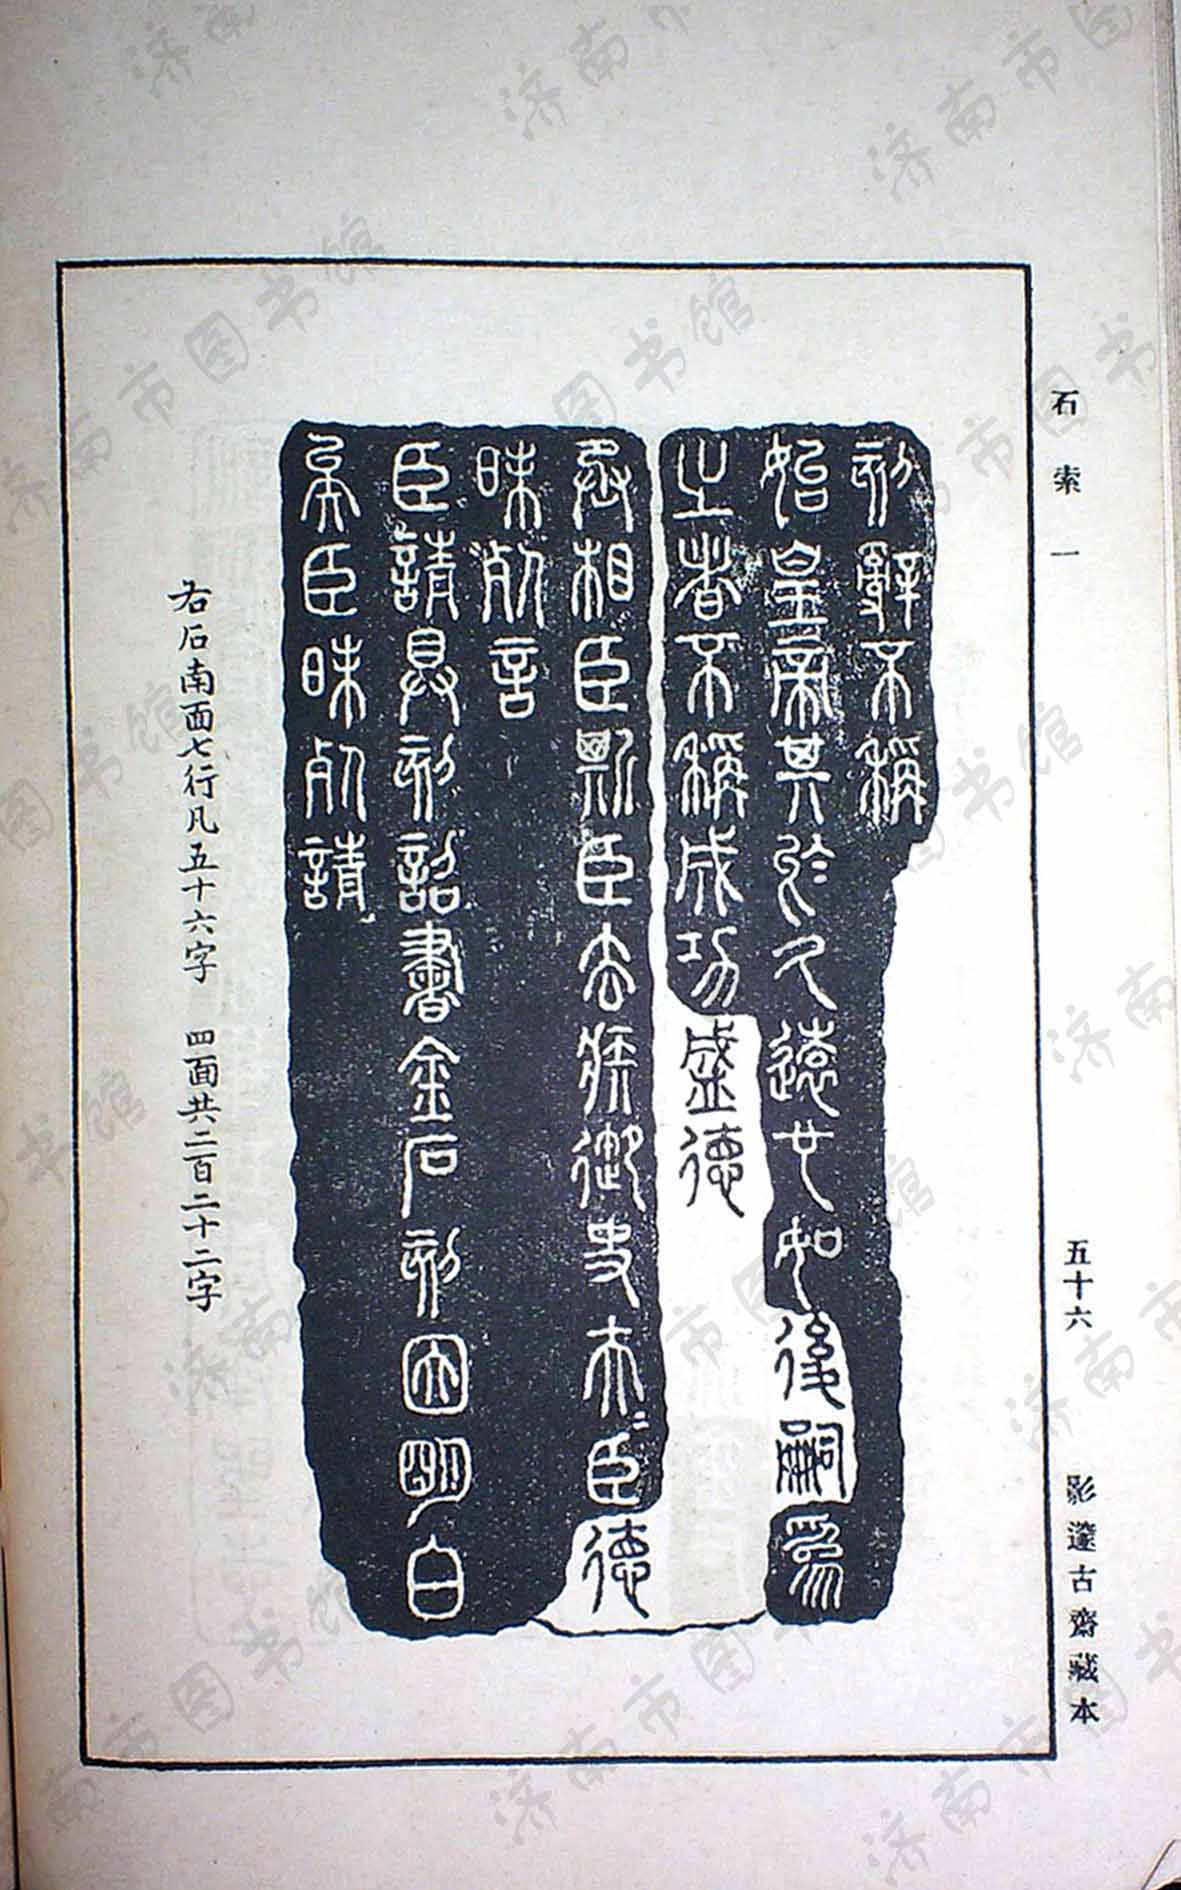 石索一
五十六
影邃古齋藏本
刻辭不稱
始皇帝其於久遠也如後嗣為
之者不稱成功盛德
丞相臣斯臣去疾御史夫=臣德
昧死言
臣請具刻詔書金石刻因明白
矣臣昧死請
右石南面七行凡五十六字 四面共二百二十二字
济南市图书馆